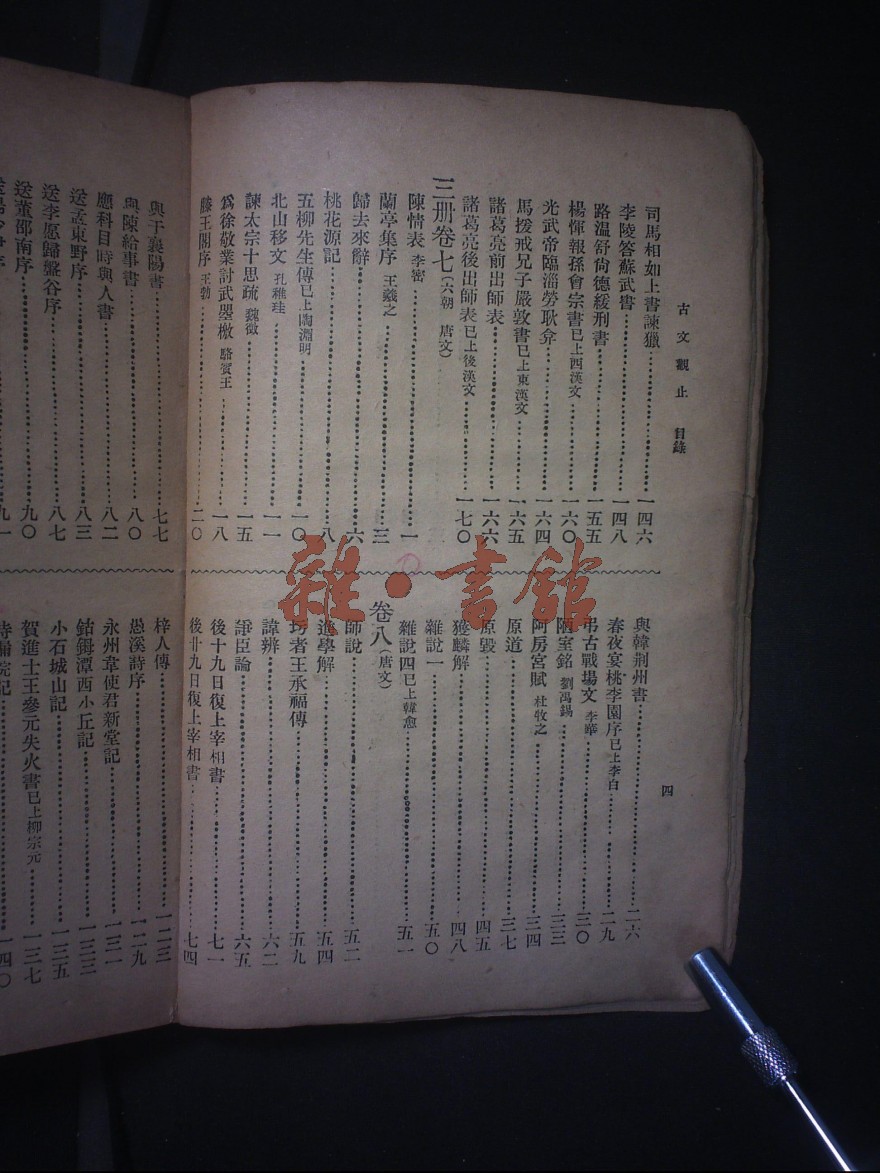 古文觀止 目錄
四
司馬相如上書諫獵 一四六
李陵答蘇武書 一四八
路溫舒尙德緩刑書 一五五
楊惲報孫會宗書已上西漢文 一六〇
光武帝臨淄勞耿弇 一六四
馬援戒兄子嚴敦書已上東漢文 一六五
諸葛亮前出師表 一六六
諸葛亮後出師表已上後漢文 一七〇
三册卷七(六朝 唐文)
陳情表 李密 一
蘭亭集序 王羲之 三
歸去來辭 六
桃花源記 八
五柳先生傳已上陶淵明 一〇
北山移文 孔稚珪 一一
諫太宗十思疏 魏徵 一五
爲徐敬業討武曌檄 駱賓王 一八
滕王閣序 王勃 二〇
與韓荆州書 二六
春夜宴桃李園序已上李白 二九
弔古戰場文 李華 三〇
陋室銘 劉禹錫 三三
阿房宮賦 杜牧之 三四
原道 三七
原毀 四五
獲麟解 四八
雜說一 五〇
雜說四已上韓愈 五一
卷八(唐文)
師說 五二
進學解 五四
圬者王承福傳 五九
諱辨 六二
諍臣論 六五
後十九日復上宰相書 七一
後廿九日復上宰相書 七四
與于襄陽書 七七
與陳給事書 八〇
應科目時與人書 八二
送孟東野序 八三
送李愿歸盤谷序 八七
送董邵南序 九〇
九一
梓人傳 一二三
愚溪詩序 一二九
永州韋使君新堂記 一三一
鈷鉧潭西小丘記 一三三
小石城山記 一三五
賀進士王參元失火書已上柳宗元 一三七
一四〇
雜·書館